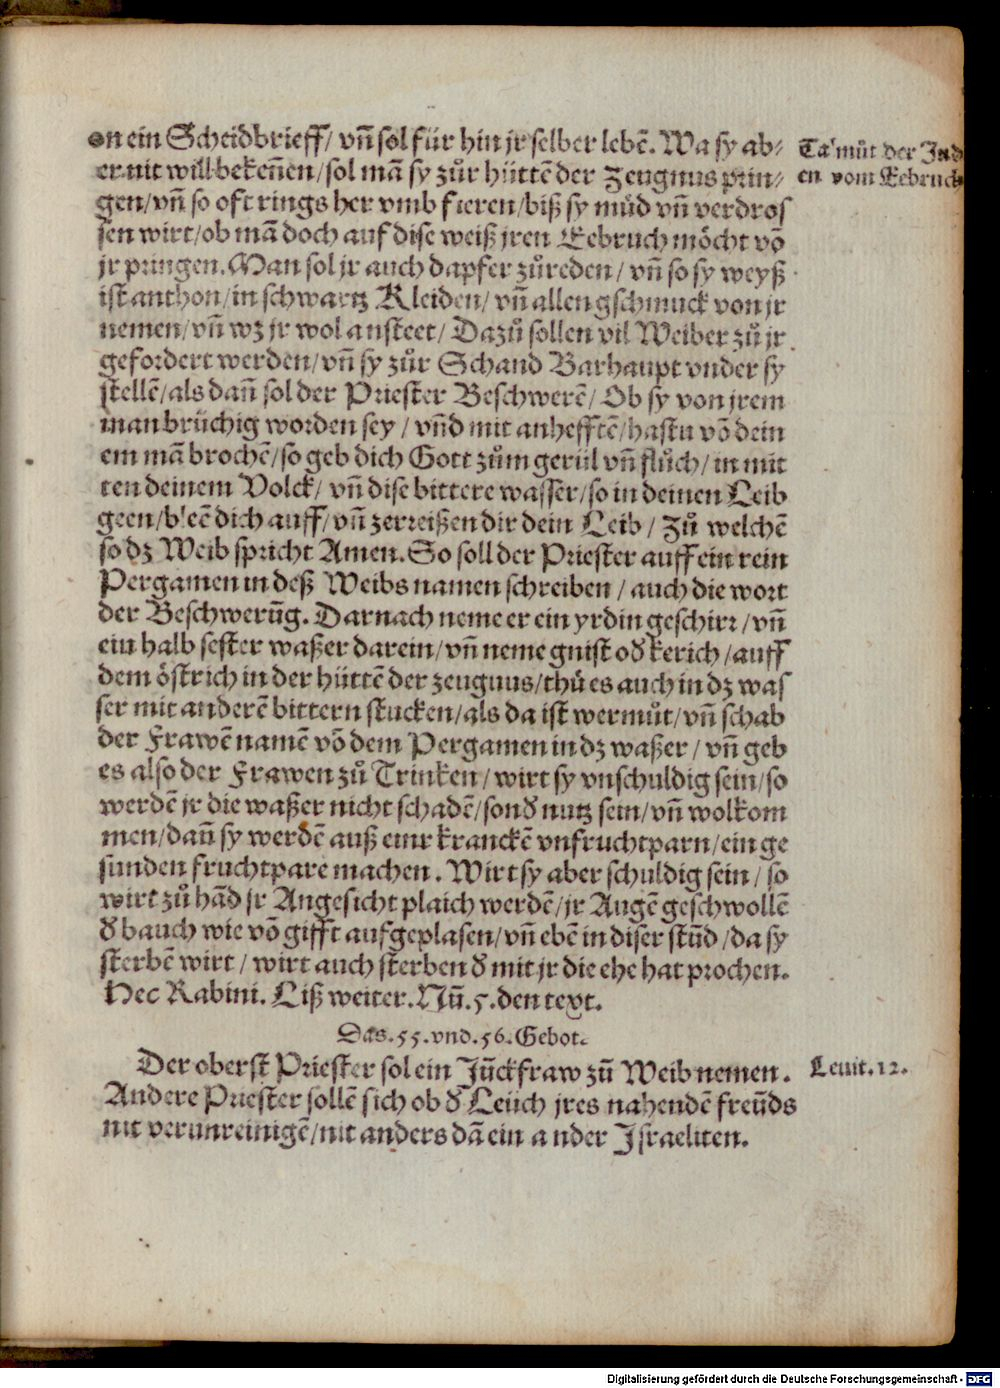 on ein Scheidbrieff/ vn̄ sol für hin jr selber lebē. Wa sy ab⸗
er nit will bekeñen/ sol mā sy zůr hüttē der Zeugnus prin⸗
gen/ vn̄ so oft rings her vmb fieren/ biß sy můd vn̄ verdros
sen wirt/ ob mā doch auf dise weiß jren Eebruch möcht vō
jr pringen. Man sol jr auch dapfer zůreden/ vn̄ so sy weyß
ist anthon/ in schwartz Kleiden/ vn̄ allen gschmuck von jr
nemen/ vn̄ wz jr wol ansteet/ Dazů sollen vil Weiber zů jr
gefordert werden/ vn̄ sy zůr Schand Barhaupt vnder sy
stellē/ als dan̄ sol der Priester Beschwerē/ Ob sy von jrem
man brüchig worden sey / vn̄d mit anhefftē/ hastu vō dein
em mā brochē/ so geb dich Gott zům gerül vn̄ flůch/ in mit
ten deinem Volck/ vn̄ dise bittere wasser/ so in deinen Leib
geen/ b'eē dich auff/ vn̄ zerreißen dir dein Leib / Zů welchē
so dz Weib spricht Amen. So soll der Priester auff ein rein
Pergamen in deß Weibs namen schreiben / auch die wort
der Beschwerūg. Darnach neme er ein yrdin geschirr / vn̄
ein halb sester waßer darein/ vn̄ neme gnist oď kerich / auff
dem östrich in der hüttē der zeugnus/ thů es auch in dz was
ser mit anderē bittern stucken/ als da ist wermůt/ vn̄ schab
der Frawē namē vō dem Pergamen in dz waßer / vn̄ geb
es also der Frawen zů Trinken/ wirt sy vnschuldig sein/ so
werdē jr die waßer nicht schadē/ sonď nutz sein/ vn̄ wolkom
men/ dan̄ sy werdē auß einr kranckē vnfruchtparn/ ein ge
sunden fruchtpare machen. Wirt sy aber schuldig sein / so
wirt zů hād jr Angesicht plaich werdē/ jr Augē geschwollē
ď bauch wie vō gifft aufgeplasen/ vn̄ ebē in diser stūd / da sy
sterbē wirt / wirt auch sterben ď mit jr die ehe hat prochen.
Hec Rabini. Liß weiter. Nū. 5. den text.
Das. 55. vnd. 56. Gebot.
Der oberst Priester sol ein Jūckfraw zū Weib nemen.
Andere Priester sollē sich ob ď Leiich jres nahendē freūds
nit verunreinigē/ nit anders dā ein ander Israeliten.
Ta'mūt der Jud
en vom Eebruch
Leuit. 12.
Digitalisierung gefördert durch die Deutsche Forschungsgemeinschaft - DFG